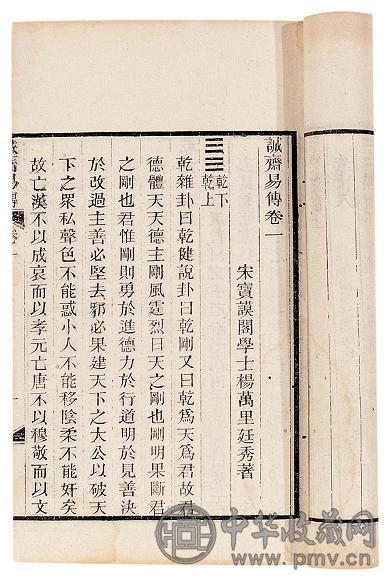 誠齋易傳卷一
宋寶謨閣學士楊萬里廷秀著
乾下
乾上
乾雜卦曰乾健說卦曰乾剛又曰乾爲天爲君故君
德體天天德主剛風霆烈日天之剛也剛明果斷君
之剛也君惟剛則勇於進德力於行道明於見善決
於改過主善必堅去邪必果建天下之大公以破天
下之衆私聲色不能惑小人不能移陰柔不能奸矣
故亡漢不以成哀而以孝元亡唐不以穆敬而以文
誠齋易傳
卷一
一
中华收藏网
www.pmv.cn